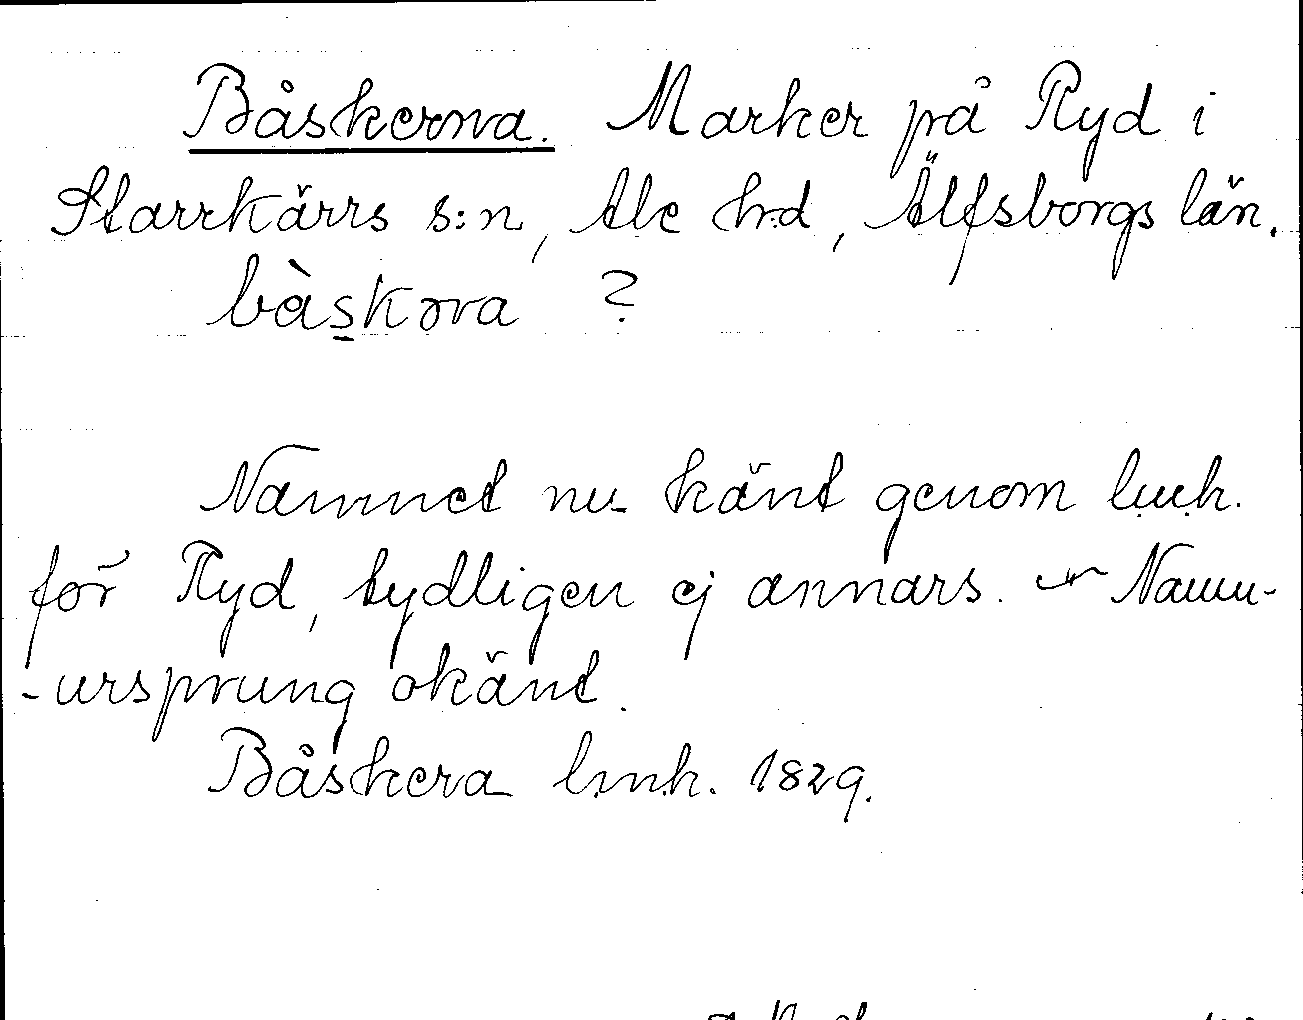 Båskerna. Marker på Ryd i
Starrkärrs s:n, Ale hrd, Älfsborgs län.
bàskəra ?
Namnet nu känt genom l.u.h.
för Ryd, tydligen ej annars. Namn-
-ursprung okänt.
Båskera l.m.h. 1829.